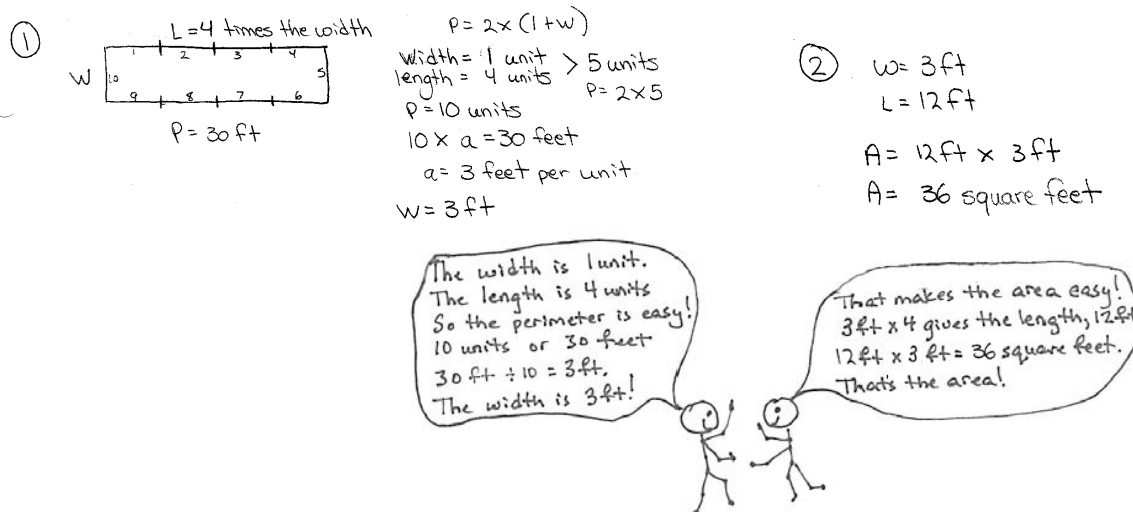 ①
L = 4 times the width
1 2 3 4
W 10 5
9 8 7 6
P = 30 ft
P = 2 x (l + w)
width = 1 unit
length = 4 units > 5 units
P = 2 x 5
P = 10 units
10 x a = 30 feet
a = 3 feet per unit
W = 3 ft
②
W = 3 ft
L = 12 ft
A = 12 ft x 3 ft
A = 36 square feet
The width is 1 unit.
The length is 4 units
So the perimeter is easy!
10 units or 30 feet
30 ft ÷ 10 = 3 ft.
The width is 3 ft!
That makes the area easy!
3 ft x 4 gives the length, 12 ft
12 ft x 3 ft = 36 square feet.
That's the area!